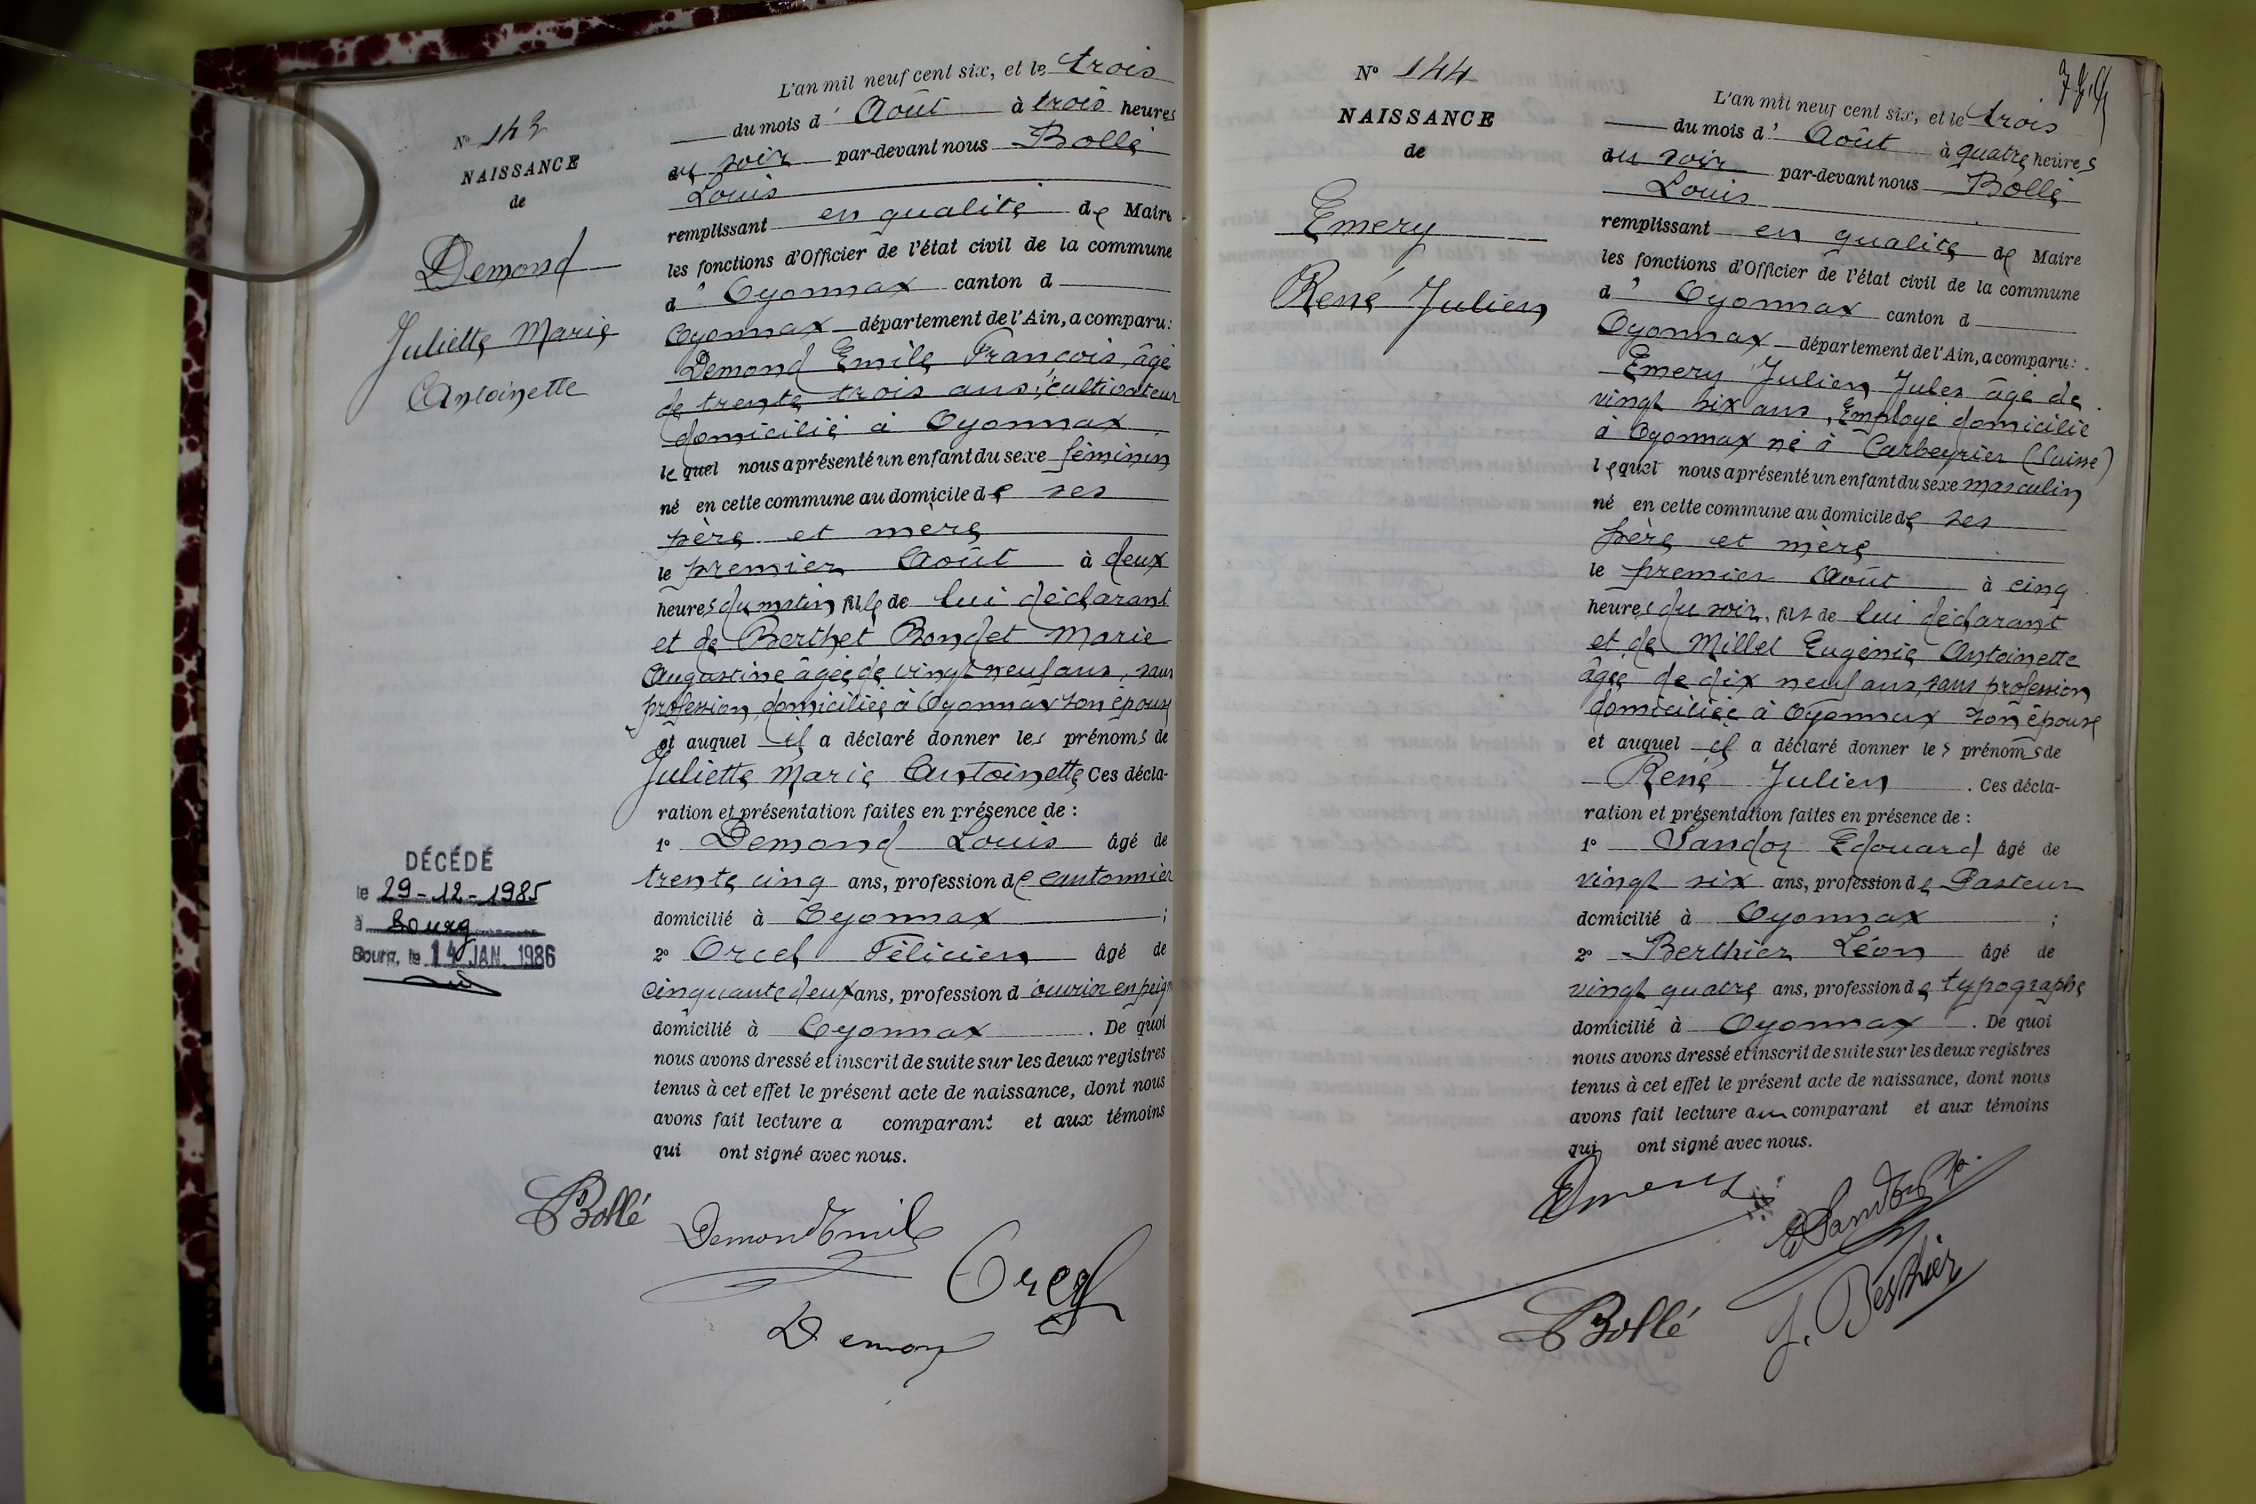 N° 143
NAISSANCE
de
Demond
Juliette Marie
Antoinette
DÉCÉDÉ
le 29-12-1985
à Bourg
Bourg, le 14 JAN. 1986
L'an mil neuf cent six, et le trois
du mois d' Août à trois heures
du soir par-devant nous Bollé
Louis
remplissant en qualité de Maire
les fonctions d'Officier de l'état civil de la commune
d' Oyonnax canton d
Oyonnax département de l'Ain, a comparu:
Demond Emile François, âgé
de trente trois ans, cultivateur
domicilié à Oyonnax
lequel nous a présenté un enfant du sexe féminin
né en cette commune au domicile de ses
père et mère
le premier Août à deux
heures du matin fille de lui déclarant
et de Berthet Bondet Marie
Augustine âgée de vingt neuf ans, sans
profession, domiciliée à Oyonnax son épouse
et auquel il a déclaré donner les prénoms de
Juliette Marie Antoinette Ces décla-
ration et présentation faites en présence de :
1° Demond Louis âgé de
trente cinq ans, profession de cantonnier
domicilié à Oyonnax ;
2° Orcel Félicien âgé de
cinquante deux ans, profession d'ouvrier en peig
domicilié à Oyonnax . De quoi
nous avons dressé et inscrit de suite sur les deux registres
tenus à cet effet le présent acte de naissance, dont nous
avons fait lecture a comparant et aux témoins
qui ont signé avec nous.
Bollé
Demond Emile
Orcel
Demon
N° 144
NAISSANCE
de
Emery
René Julien
L'an mil neuf cent six, et le trois
du mois d' Août à quatre heures
du soir par-devant nous Bollé
Louis
remplissant en qualité de Maire
les fonctions d'Officier de l'état civil de la commune
d' Oyonnax canton d
Oyonnax département de l'Ain, a comparu:
Emery Julien Jules âgé de
vingt six ans, Employé domicilié
à Oyonnax né à Carbeyrier (Suisse)
lequel nous a présenté un enfant du sexe masculin
né en cette commune au domicile de ses
père et mère
le premier Août à cinq
heures du soir, fils de lui déclarant
et de Millet Eugénie Antoinette
âgée de dix neuf ans sans profession
domiciliée à Oyonnax son épouse
et auquel il a déclaré donner les prénoms de
René Julien . Ces décla-
ration et présentation faites en présence de :
1° Sandoz Edouard âgé de
vingt six ans, profession de Pasteur
domicilié à Oyonnax ;
2° Berthier Léon âgé de
vingt quatre ans, profession de typographe
domicilié à Oyonnax . De quoi
nous avons dressé et inscrit de suite sur les deux registres
tenus à cet effet le présent acte de naissance, dont nous
avons fait lecture au comparant et aux témoins
qui ont signé avec nous.
Emery
E Sandoz
Bollé
Berthier